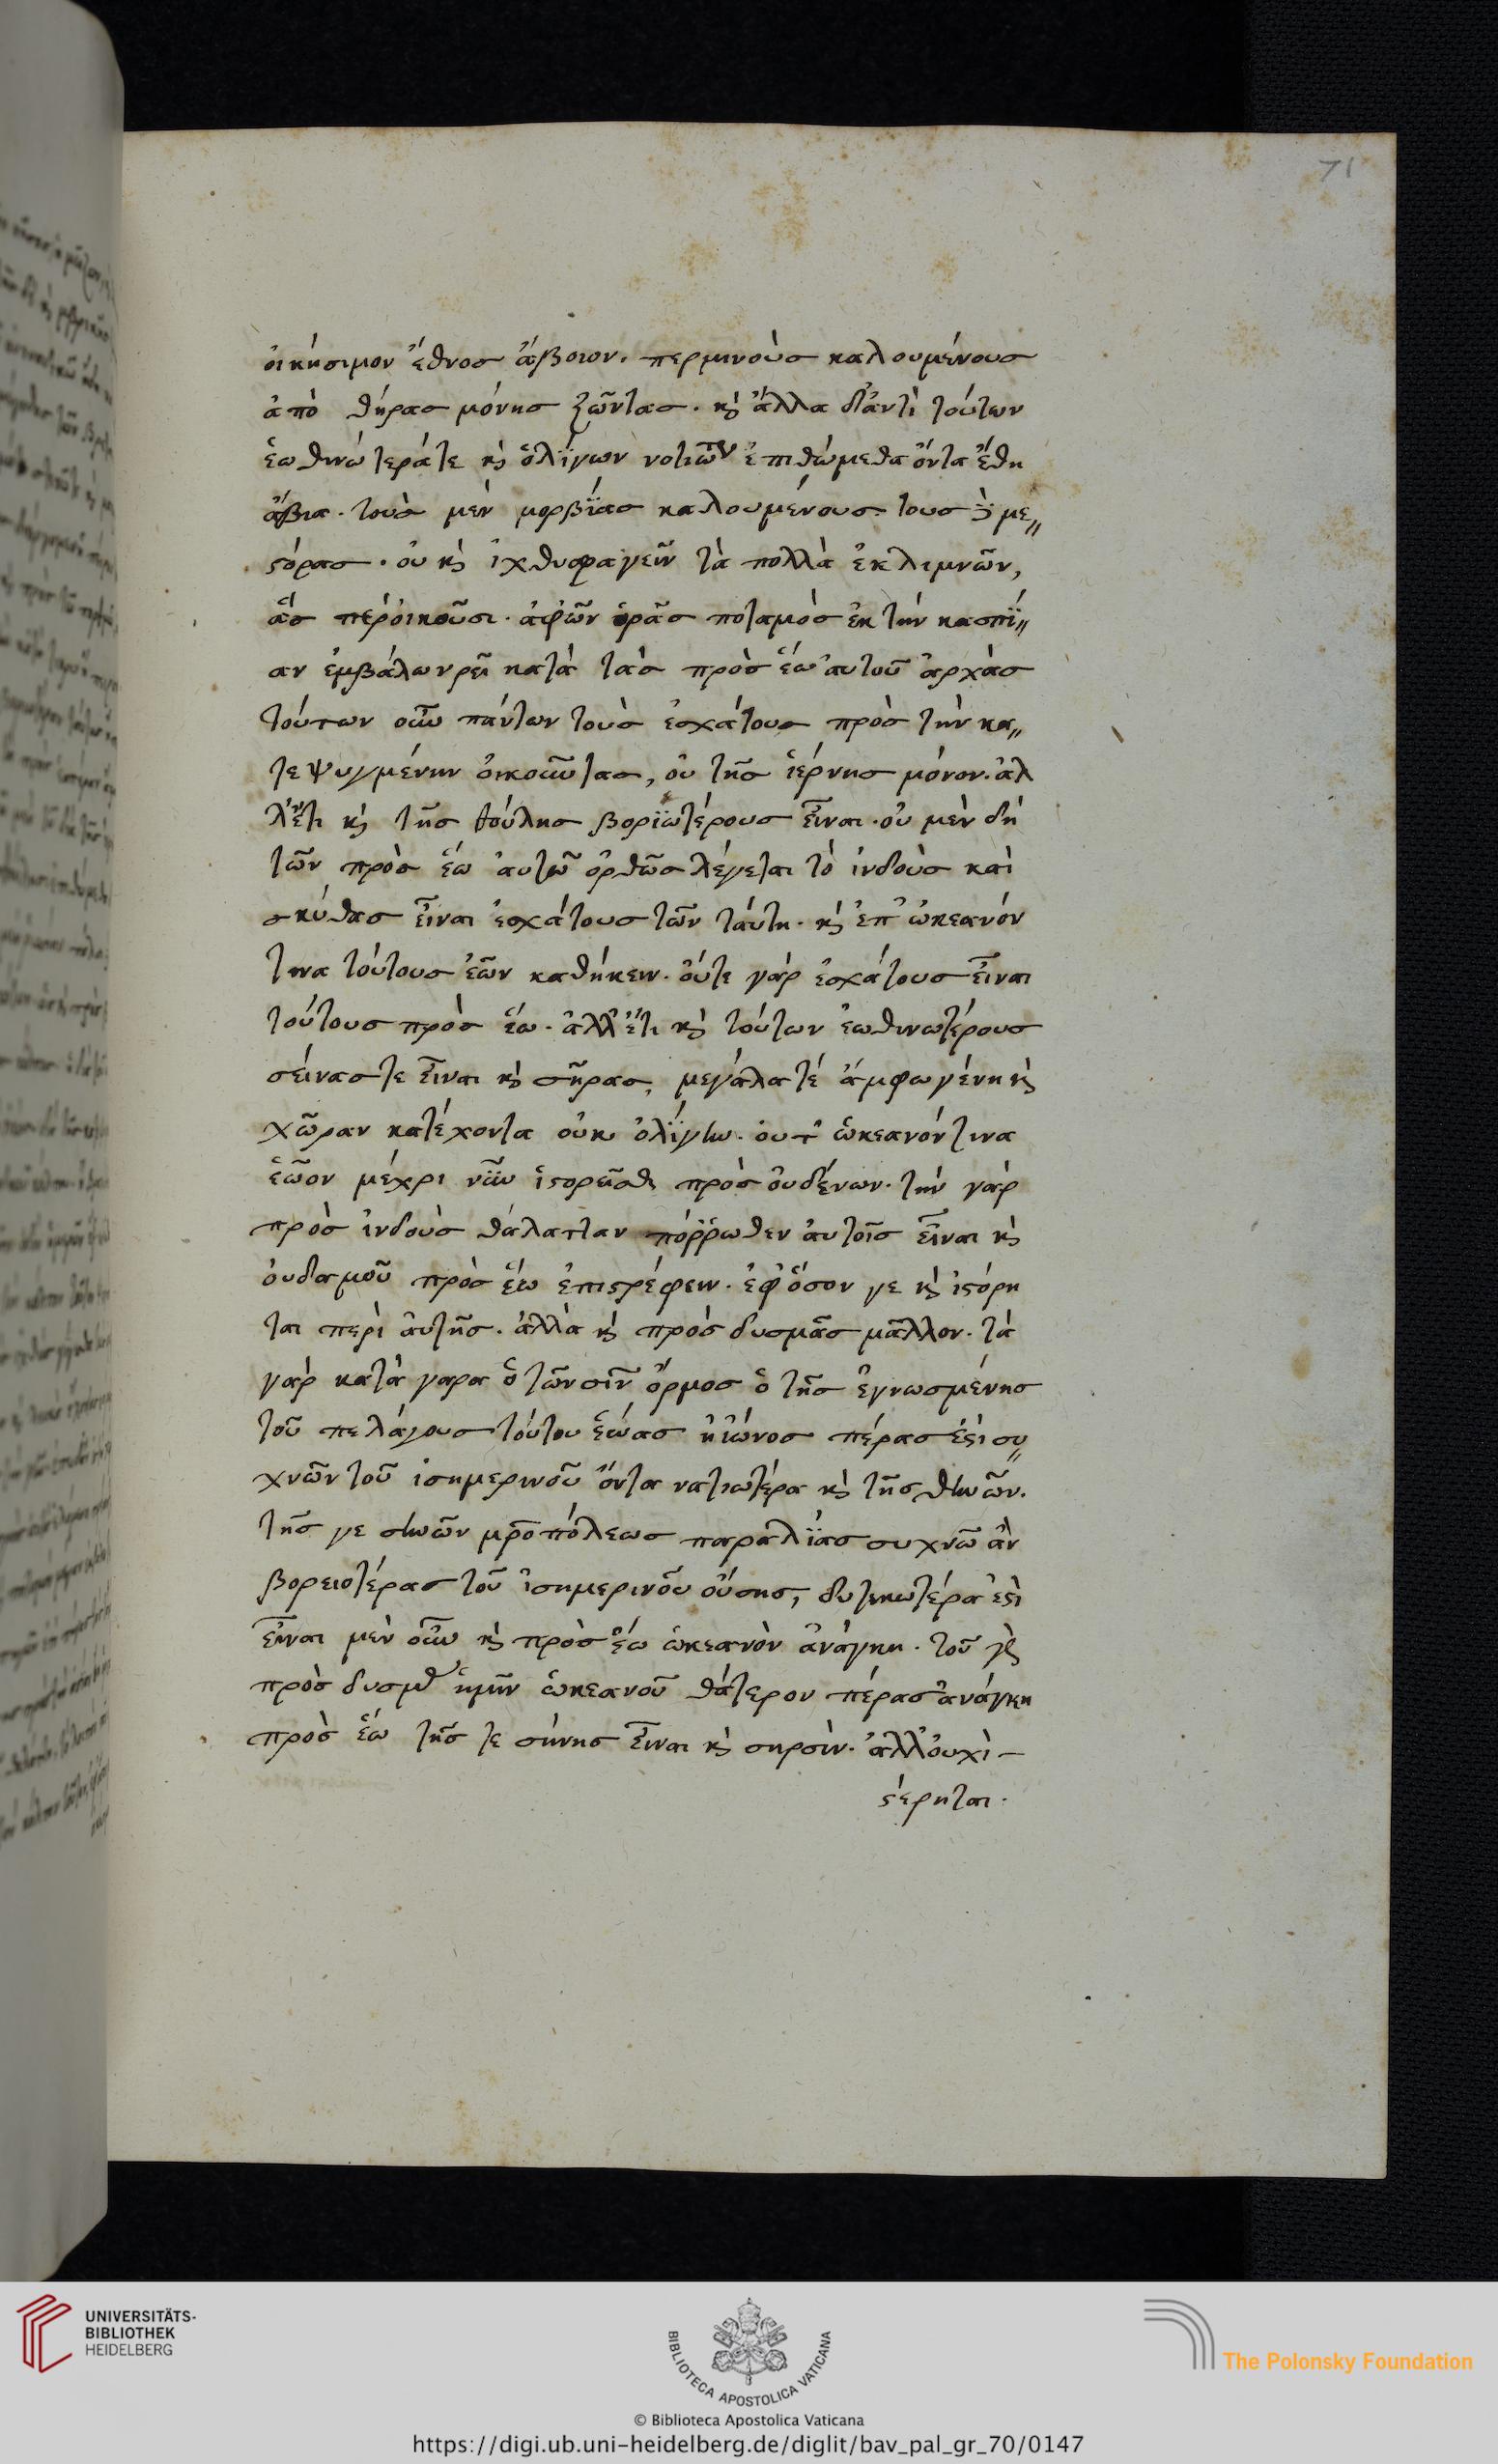 71
οἰκήσιμον ἔθνος ἄβοιον. περμινοὺς καλουμένους
ἀπὸ θήρας μόνης ζῶντας. κὶ ἄλλα δ'ἀντὶ τούτων
ἑωθινώτεράτε κὶ ὀλΐγων νοτιωτ ἐπιθώμεθα ὄντα ἔθη
ἄβια. τοὺς μὲν μορβΐας καλουμένους τους με〃
ϛόρας. οὐ κὶ ἰχθυοφαγεῖν τὰ πολλὰ ἐκ λιμνῶν,
ἃς πέροικοῦσι. ἀφῶν ὁρᾶς ποταμὸς ἐκ τὴν κασπΐ〃
αν ἐμβάλων ρεῖ κατὰ τὰς πρὸς ἕω αὐτοῦ ἀρχὰς
τούτων οὖν πάντων τοὺς ἐσχάτους πρὸς τὴν κα〃
τεψυγμένην οἰκοῦντας, οὐ τῆς ἱέρνης μόνον. ἀλ
λ'ἔτι κὶ τῆς θούλης βορϊωτέρους εἶναι. οὐ μὲν δὴ
τῶν πρὸς ἕω αὐτῶ ὀρθῶς λέγεται τὸ ἰνδοὺς καὶ
σκύθας εἶναι ἐσχάτους τῶν ταύτη. κὶ ἐπ' ὠκεανόν
τινα τούτους ἑῶν καθήκειν. οὔτε γὰρ ἐσχάτους εἶναι
τούτους πρὸς ἕω. ἀλλ'ἔτι κὶ τούτων ἑωθινωτέρους
σείνας τε εἶναι κὶ σῆρας, μεγάλα τέ ἄμφω γένη κὶ
χῶραν κατέχοντα οὐκ ὀλΐγην. οὐτ' ὠκεανόν τινα
ἑῶον μέχρι νῦν ἱϛορεῖσθ πρὸς οὐδένων. τὴν γὰρ
πρὸς ἰνδοὺς θάλατταν πόῤῥωθεν αὐτοῖς εἶναι κὶ
οὐδαμοῦ πρὸς ἕω ἐπιϛρέφειν. ἐφ'ὅσον γε κὶ ἱϛόρη
ται περὶ αὐτῆς. ἀλλὰ κὶ πρὸς δυσμὰς μᾶλλον. τὰ
γὰρ κατὰ γαρα ὁ τῶν σιν ὅρμος ὁ τῆς ἐγνωσμένης
τοῦ πελάγους τούτου ἑώας ἠϊῶνος πέρας ἐϛὶ συ〃
χνῶν τοῦ ἰσημερινοῦ ὄντα νατιωτέρα κὶ τῆς θινῶν.
τῆς γε σινῶν μροπόλεως παραλΐας συχνῶ ἂν
βορειοτέρας τοῦ ἰσημερινοῦ οὔσης, δυτικωτέρα ἐϛὶ
εἶναι μὲν οὖν κὶ πρὸς ἕω ὠκεανὸν ἀνάγκη. τοῦ γὸ
πρὸς δυσμ ἡμῖν ὠκεανοῦ θάτερον πέρας ἀνάγκη
πρὸς ἕω τῆς τε σήνης εἶναι κὶ σηρσὶν. ἀλλ'οὐχὶ –
ϛέρηται.
UNIVERSITÄTS-
BIBLIOTHEK
HEIDELBERG
BIBLIOTECA APOSTOLICA VATICANA
The Polonsky Foundation
© Biblioteca Apostolica Vaticana
https://digi.ub.uni-heidelberg.de/diglit/bav_pal_gr_70/0147